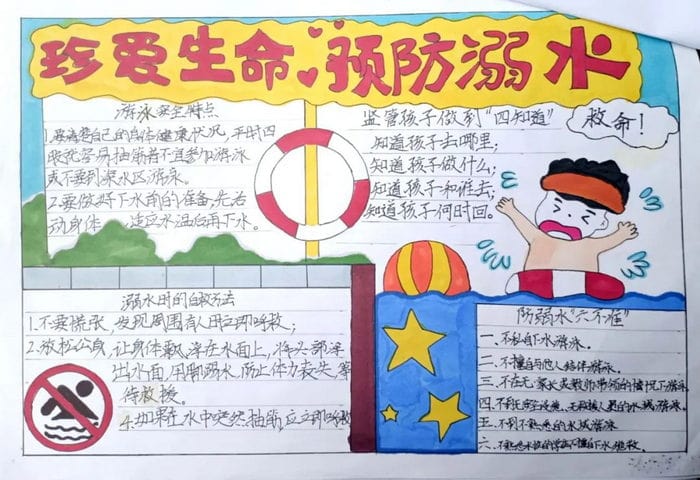 珍爱生命 预防溺水
游泳安全特点
1.要清楚自己的身体健康状况,平时四
肢就容易抽筋者不宜参加游泳
或不要到深水区游泳。
2.要做好下水前的准备,先活
动身体 适应水温后再下水。
监管孩子做到“四知道”
知道孩子去哪里;
知道孩子做什么;
知道孩子和谁去;
知道孩子何时回。
救命!
溺水时的自救方法
1.不要慌张,发现周围有人时立即呼救;
2.放松全身,让身体飘浮在水面上,将头部浮
出水面,用脚踢水,防止体力丧失,等
待救援。
4.如果在水中突然抽筋,应立即呼救
防溺水“六不准”
一、不私自下水游泳。
二、不擅自与他人结伴游泳。
三、不在无家长或教师带领的情况下游泳
四、不到无安全设施、无救援人员的水域游泳
五、不到不熟悉的水域游泳
六、不熟悉水性的学生不擅自下水施救。